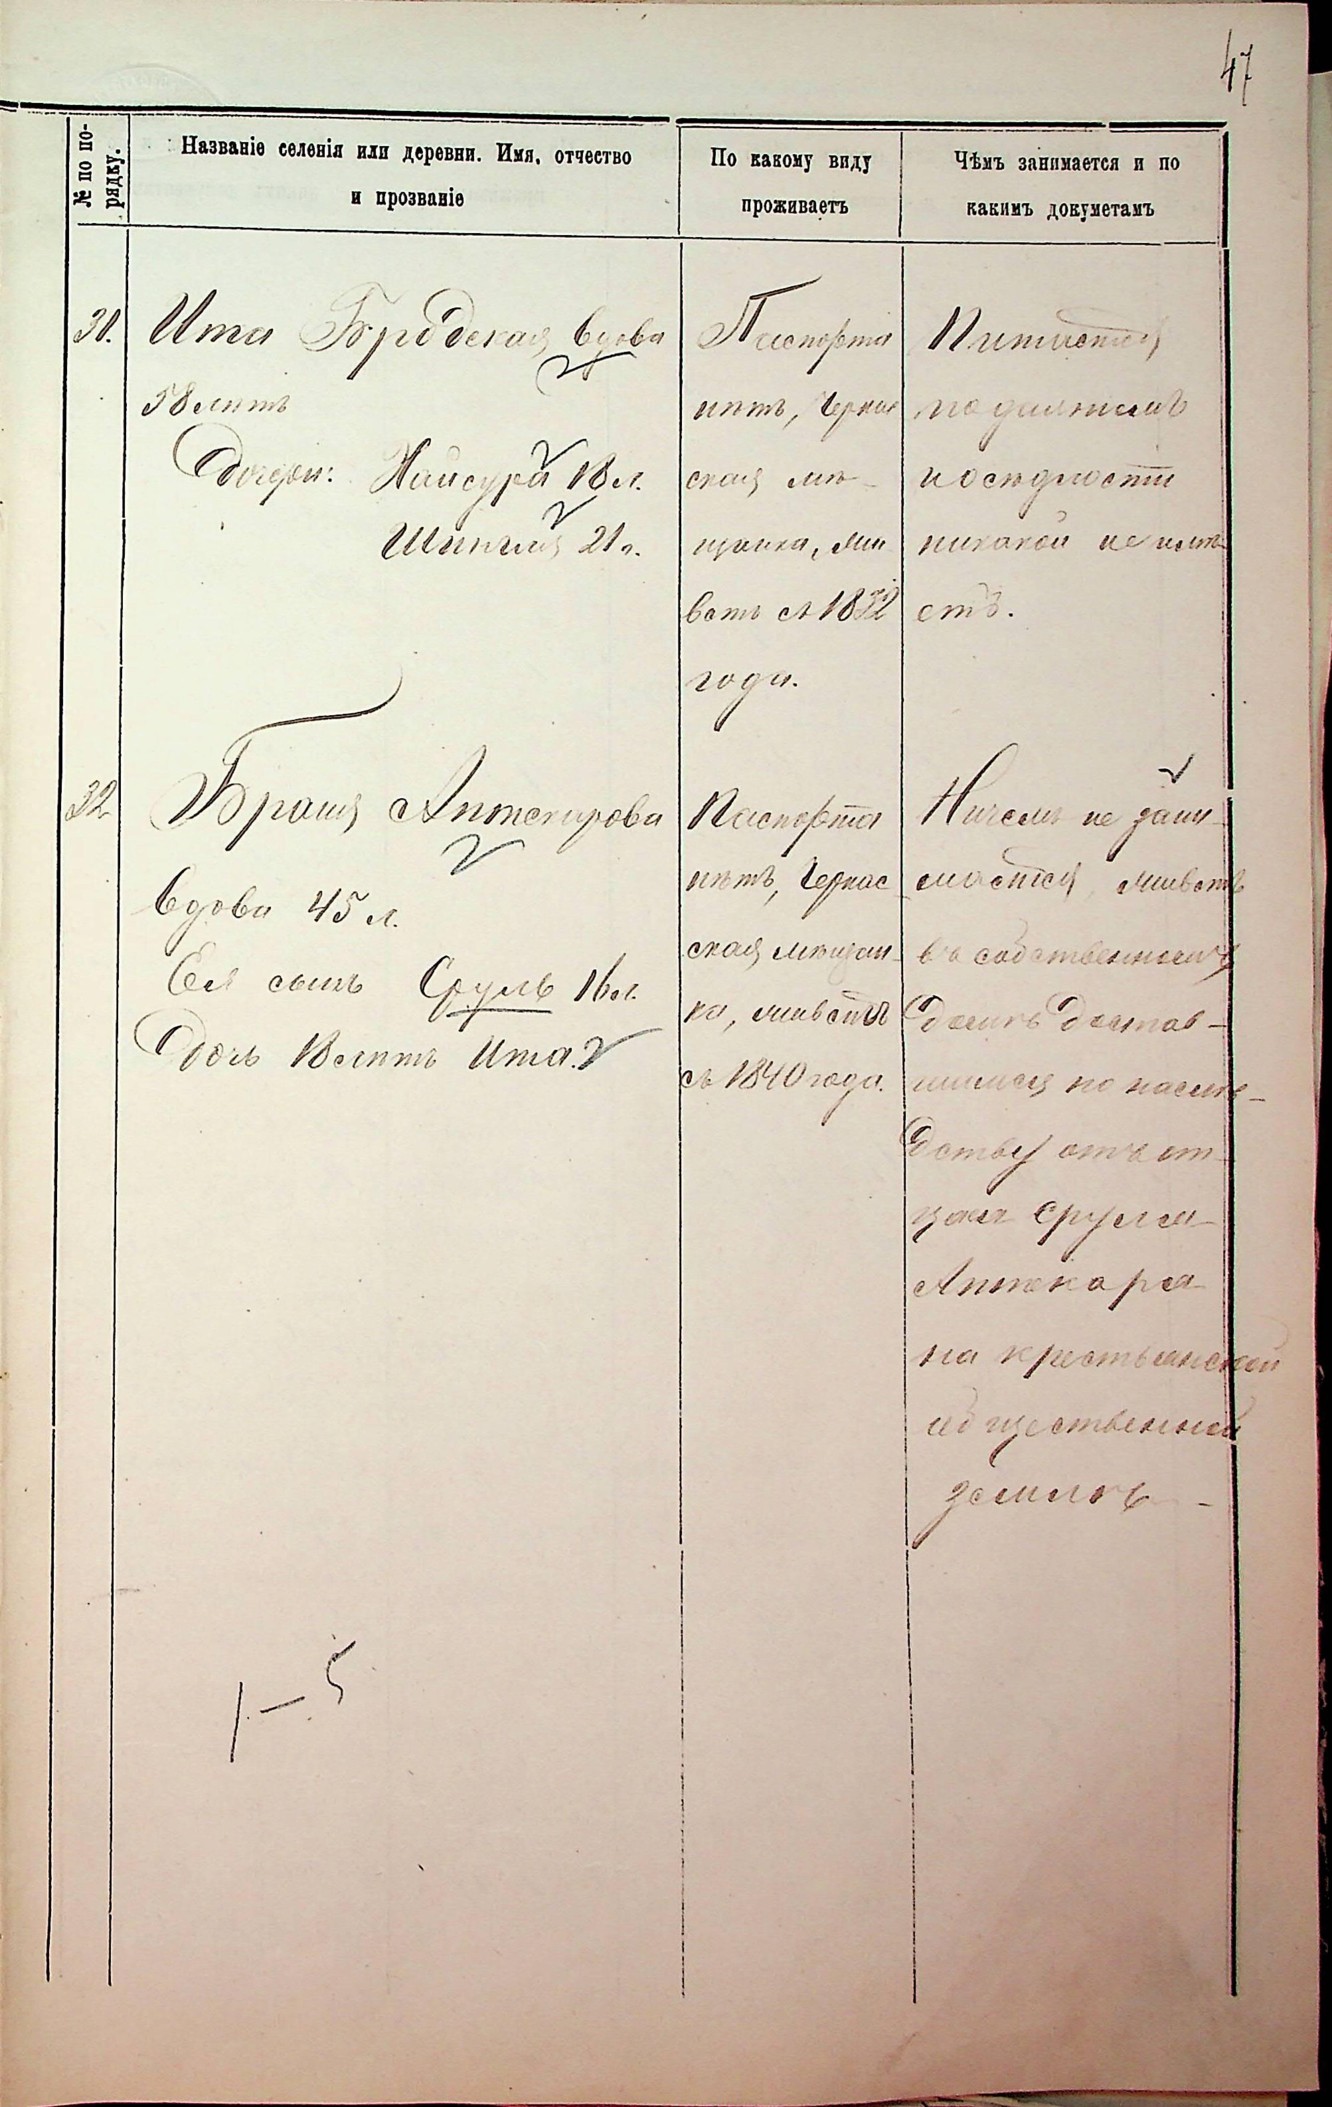 47
№ по по-
рядку.
Названіе селенія или деревни. Имя, отчество
и прозваніе
По какому виду
проживаетъ
Чѣмъ занимается и по
какимъ докуметамъ
31.
Ита Бродская вдова
58 лѣтъ
Дочери: Хайсура 18 л.
Шинтля 21 л.
Паспорта
нѣтъ, Черкас
ская мѣ-
щанка, жи
ветъ съ 1832
года.
Питается
подаяніемъ
и осѣдлости
никакой не имѣ-
етъ.
32
Браня Аптекарова
вдова 45 л.
Ея сынъ Сруль 16 л.
Дочь 18 лѣтъ Ита.
Паспорта
нѣтъ, Черкас
ская мѣщан-
ка, живетъ
съ 1840 года.
Ничемъ не зани-
мается, живетъ
въ собственномъ
домѣ достав-
шимся по наслѣ-
дству отъ от-
ца Сруля
Аптекаря
на крестьянской
общественной
землѣ
1 - 5